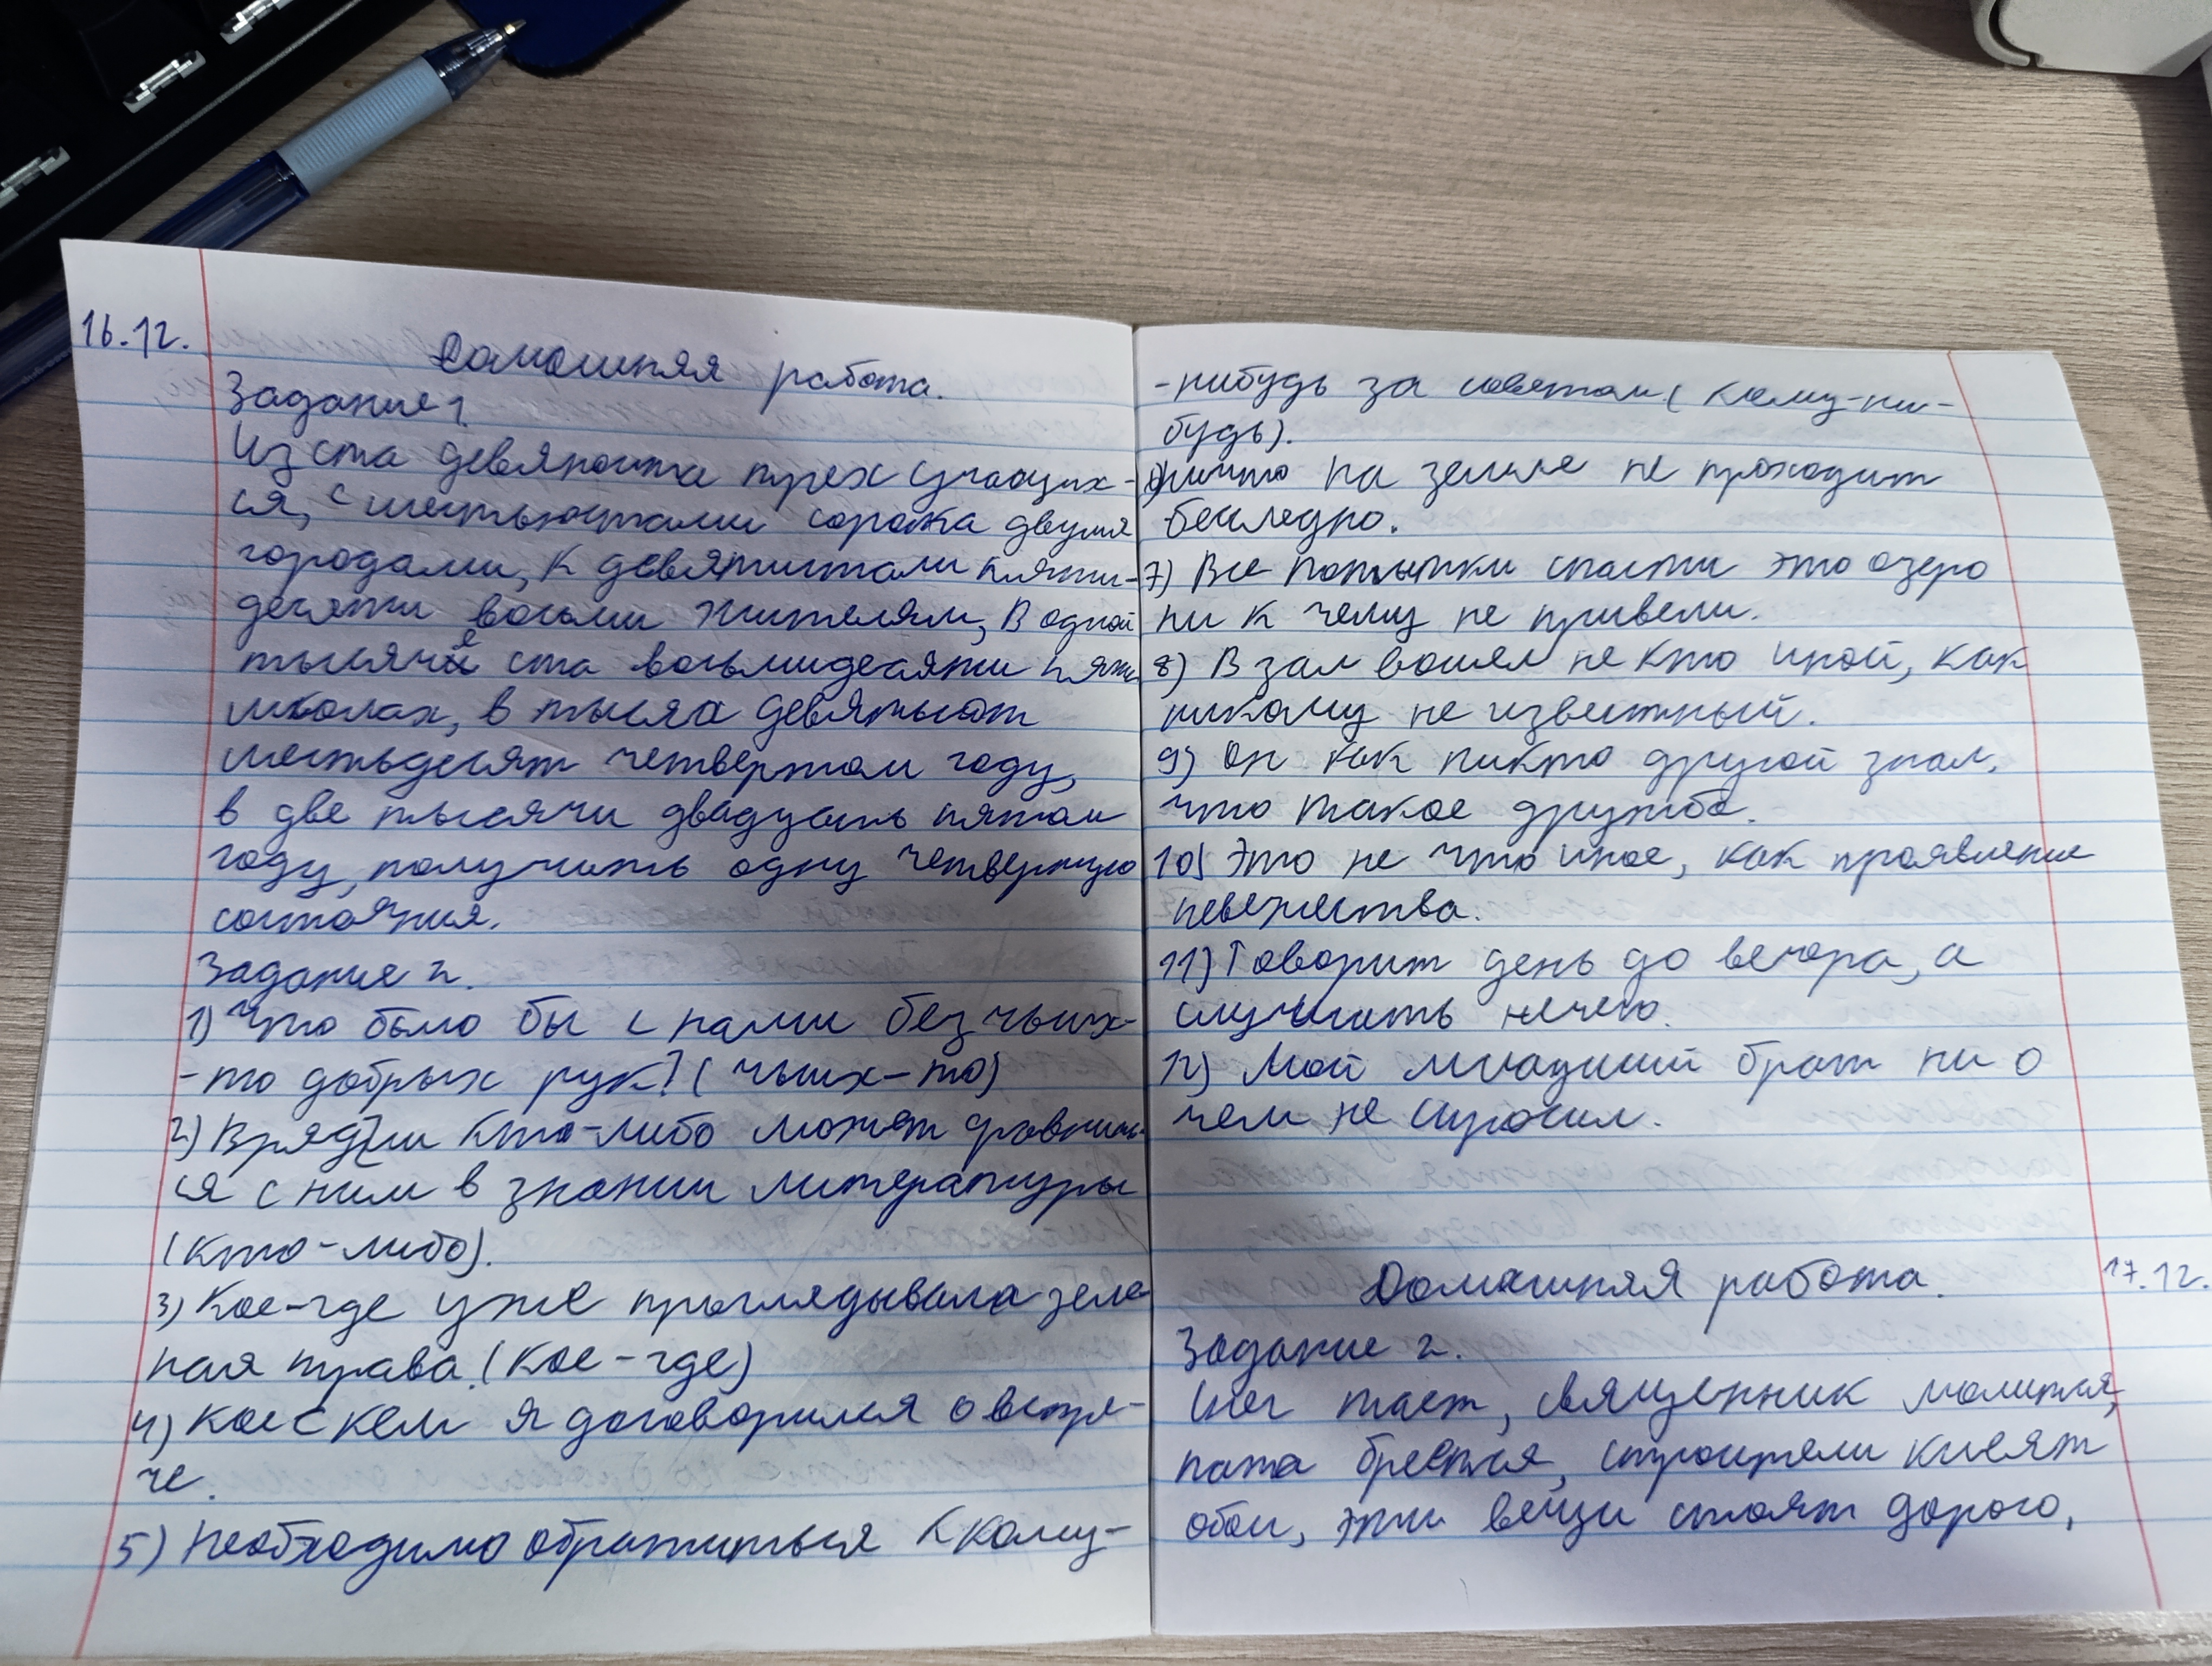 16.12.
Домашняя работа.
Задание 1.
Из ста девяноста трех учащих-
ся, с шестьюстами сорока двумя
городами, к девятистам пяти-
десяти восьми жителям, в одной
тысяче ста восьмидесяти пяти
школах, в тысяча девятьсот
шестьдесят четвертом году,
в две тысячи двадцать пятом
году, получить одну четвертую
состояния.
Задание 2.
1) Что было бы с нами без чьих-
-то добрых рук? (чьих-то)
2) Вряд ли кто-либо может сравнить-
ся с ним в знании литературы
(кто-либо).
3) Кое-где уже проглядывала зеле
ная трава. (кое-где)
4) Кое с кем я договорился о встре-
че.
5) Необходимо обратиться к кому-
-нибудь за советом (кому-ни-
будь).
6) ничто на земле не проходит
бесследно.
7) Все попытки спасти это озеро
ни к чему не привели.
8) В зал вошел не кто иной, как
никому не известный.
9) Он как никто другой знал,
что такое дружба.
10) Это не что иное, как проявление
невежества.
11) Говорит день до вечера, а
слушать нечего.
12) Мой младший брат ни о
чем не спросил.
Домашняя работа.
17.12.
Задание 2.
Снег тает, священник молится,
папа бреется, строители клеят
обои, эти вещи стоят дорого,